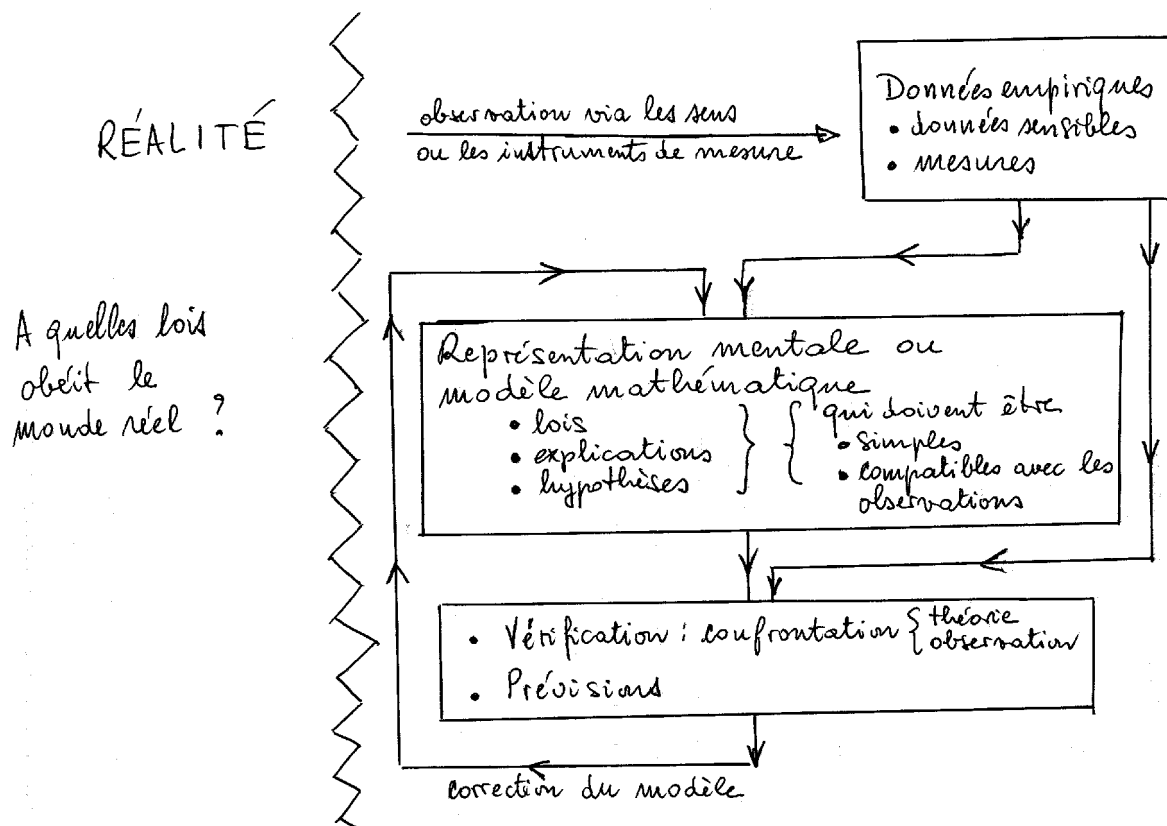 RÉALITÉ
A quelles lois
obéit le
monde réel ?
observation via les sens
ou les instruments de mesure
Données empiriques
• données sensibles
• mesures
Représentation mentale ou
modèle mathématique
• lois
• explications
• hypothèses
qui doivent être
• simples
• compatibles avec les
observations
• Vérification : confrontation { théorie
observation
• Prévisions
correction du modèle